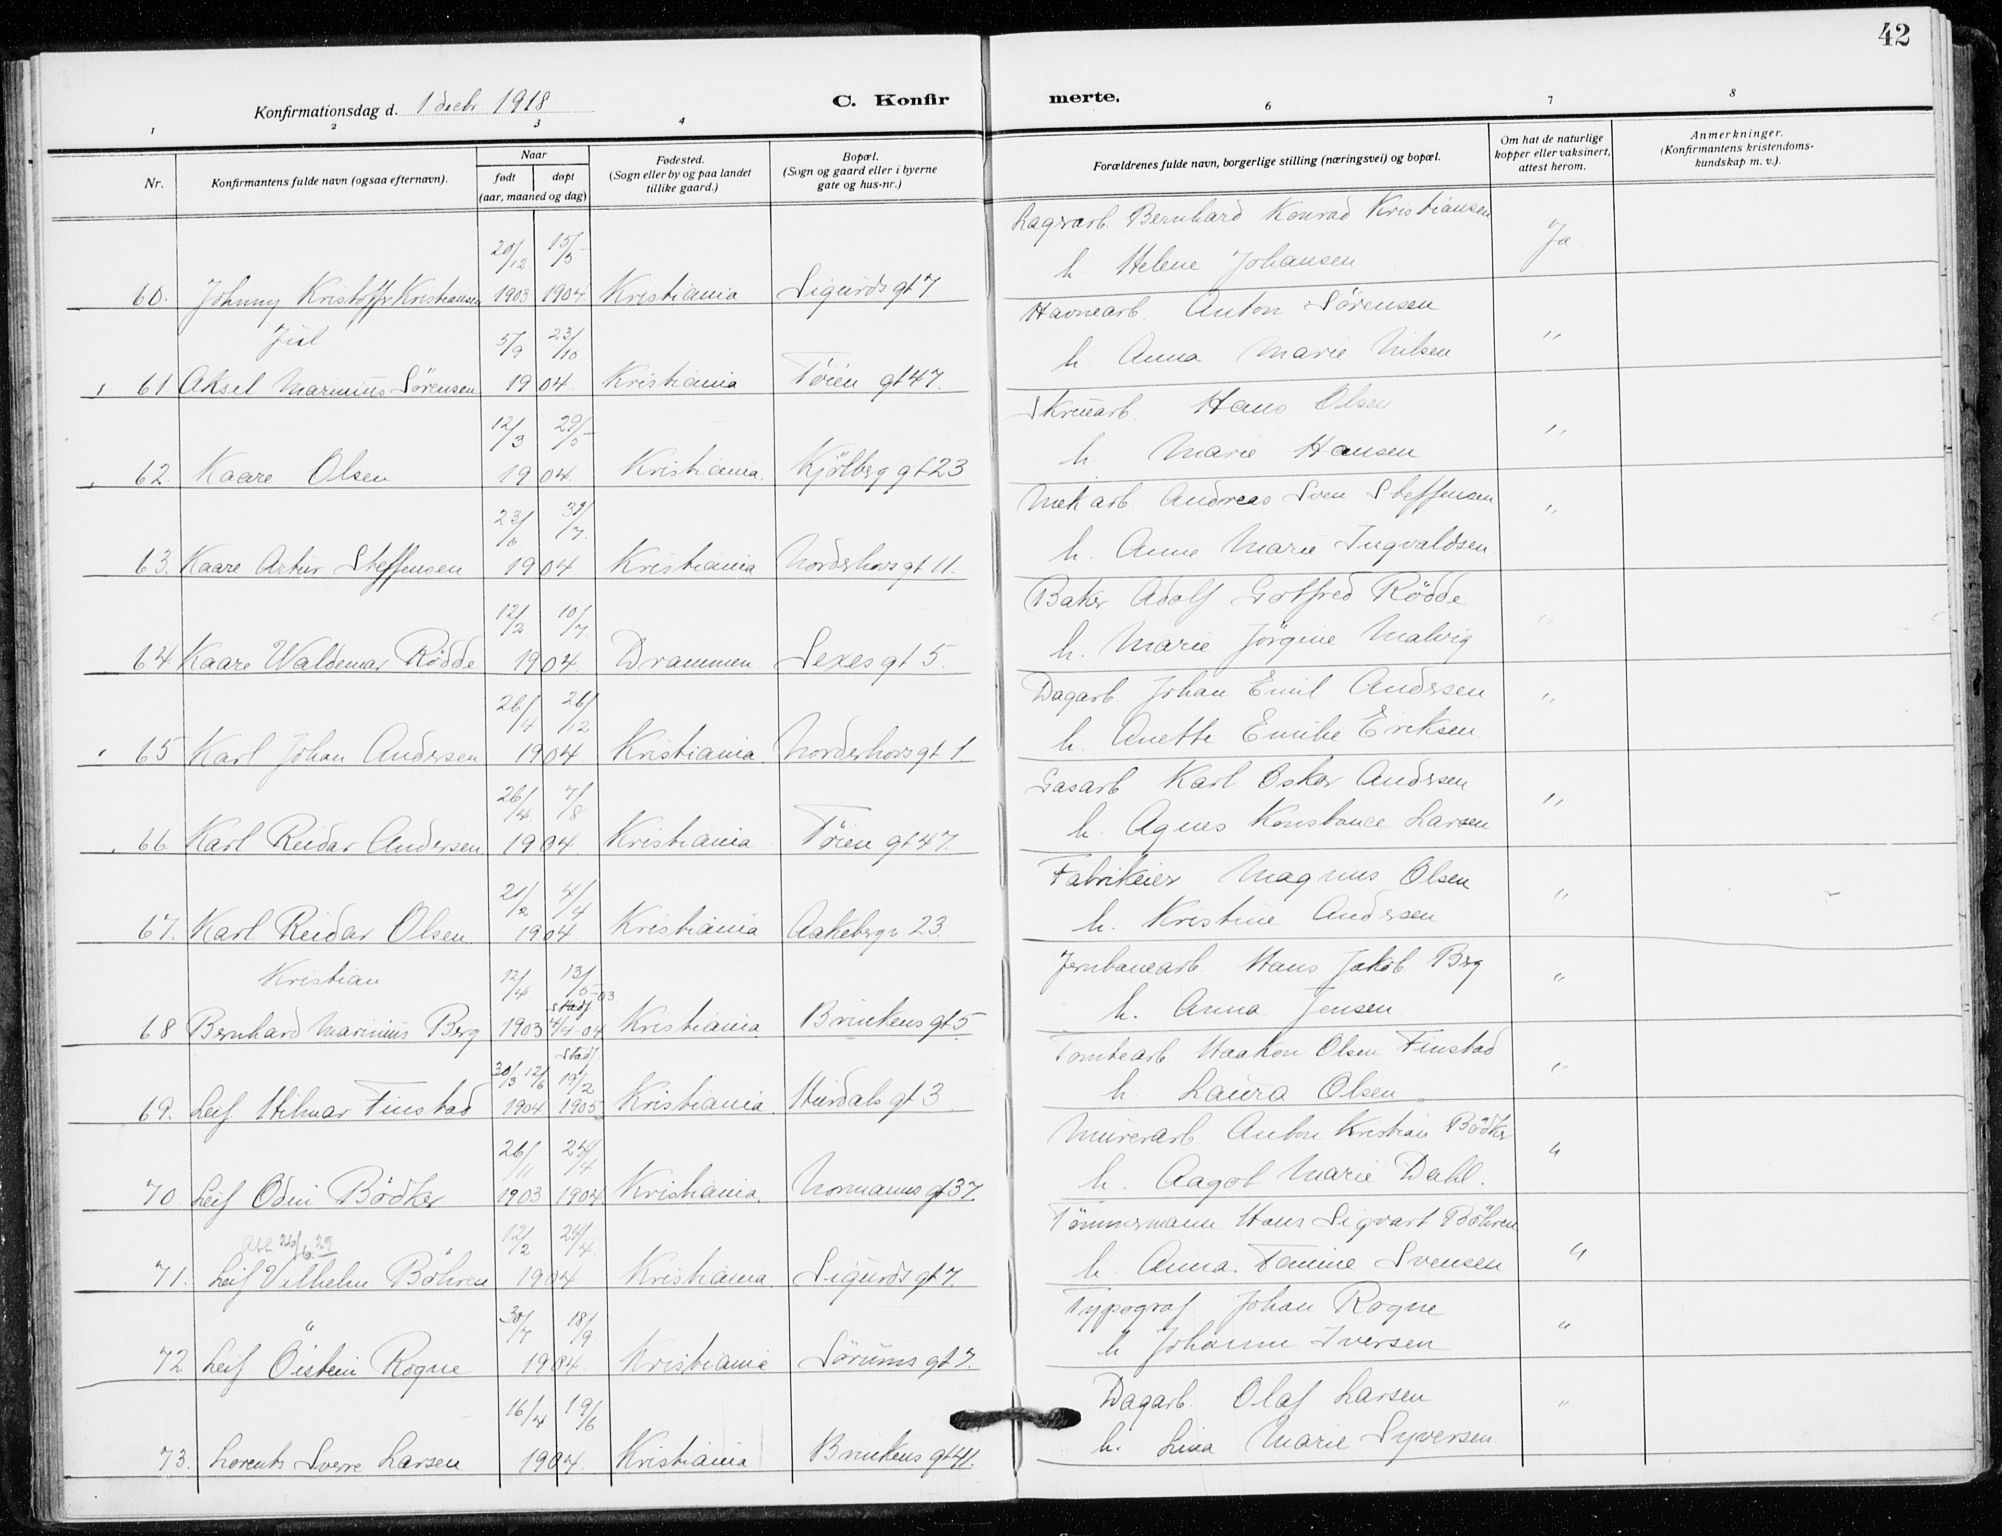 42
Konfirmationsdag d. 1 decbr. 1918
C. Konfirmerte.
1 2 3 4 6 7 8
Nr.
Konfirmantens fulde navn (ogsaa efternavn).
Naar
født døpt
(aar, maaned og dag)
Fødested.
(Sogn eller by og paa landet
tillike gaard.)
Bopæl.
(Sogn og gaard eller i byerne
gate og hus-nr.)
Forældrenes fulde navn, borgerlige stilling (næringsvei) og bopæl.
Om hat de naturlige
kopper eller vaksinert,
attest herom.
Anmerkninger.
(Konfirmantens kristendoms-
kundskap m. v.).
20/12 15/5 Lagerarb. Bernhard Konrad Kristiansen Ja
60. Johnny Kristoffer Kristiansen 1903 1904. Kristiania Sigurds gt 7 h. Helene Johansen
Juel 5/9 23/10 Havnearb. Anton Sörensen "
61 Aksel Marinius Sörensen 1904. Kristiania Töien gt 47. h. Anna Marie Nilsen
12/3 29/5 Skruearb. Hans Olsen "
62. Kaare Olsen 1904. Kristiania. Kjölberg gt 23 h. Marie Hansen
23/6 31/7. Mek arb. Andreas Sven Steffensen "
63. Kaare Artur Steffensen 1904 Kristiania Norderhovs gt 11. h. Anne Marie Ingvaldsen
12/2 10/7. Baker Adolf Gotfred Rödde "
64 Kaare Waldemar Rödde 1904. Drammen Sexes gt 5. h. Marie Jörgine Malvig
26/4 26/12 Dagarb. Johan Emil Andersen "
65 Karl Johan Andersen 1904 Kristiania. Norderhovs gt 1. h. Anette Emilie Eriksen
26/4. 7/8 Gasarb. Karl Oskar Andersen "
66 Karl Reidar Andersen 1904. Kristiania Töien gt 47. h. Agnes Konstance Larsen
21/2 4/4 Fabrikeier Magnus Olsen "
67. Karl Reidar Olsen. 1904. Kristiania Aakebergv 23. h. Kristine Andersen
Kristian 12/4 13/5-03 Jernbanearb. Hans Jakob Berg "
stadf.
68 Bernhard Marinius Berg 1903 4/4-04 Kristiania. Brinkens gt 5 h. Anna Jensen
Stadf.
30/3 12/6 19/2 Tomtearb. Haakon Olsen Finstad "
69. Leif Hilmar Finstad 1904 1905 Kristiania. Hurdals gt 3 h. Laura Olsen
26/11 24/4 Murerarb. Anton Kristian Bödker "
70. Leif Odin Bödker 1903 1904. Kristiania. Normanns gt 37. h. Aagot Marie Dahl.
26/6.29 12/2 24/4. Tömmermann Hans Sigvart Böhren "
71. Leif Vilhelm Böhren 1904 Kristiania. Sigurds gt 7. h. Anna. Tomine Svensen
30/7 18/9 Typograf. Johan Rogne "
72 Leif Öistein Rogne 1904. Kristiania Sörums gt 7. h Johanne Iversen
16/4 19/6 Dagarb. Olaf Larsen "
73. Lorents Sverre Larsen 1904. Kristiania Brinkens gt 41. h. Lina Marie Syversen.